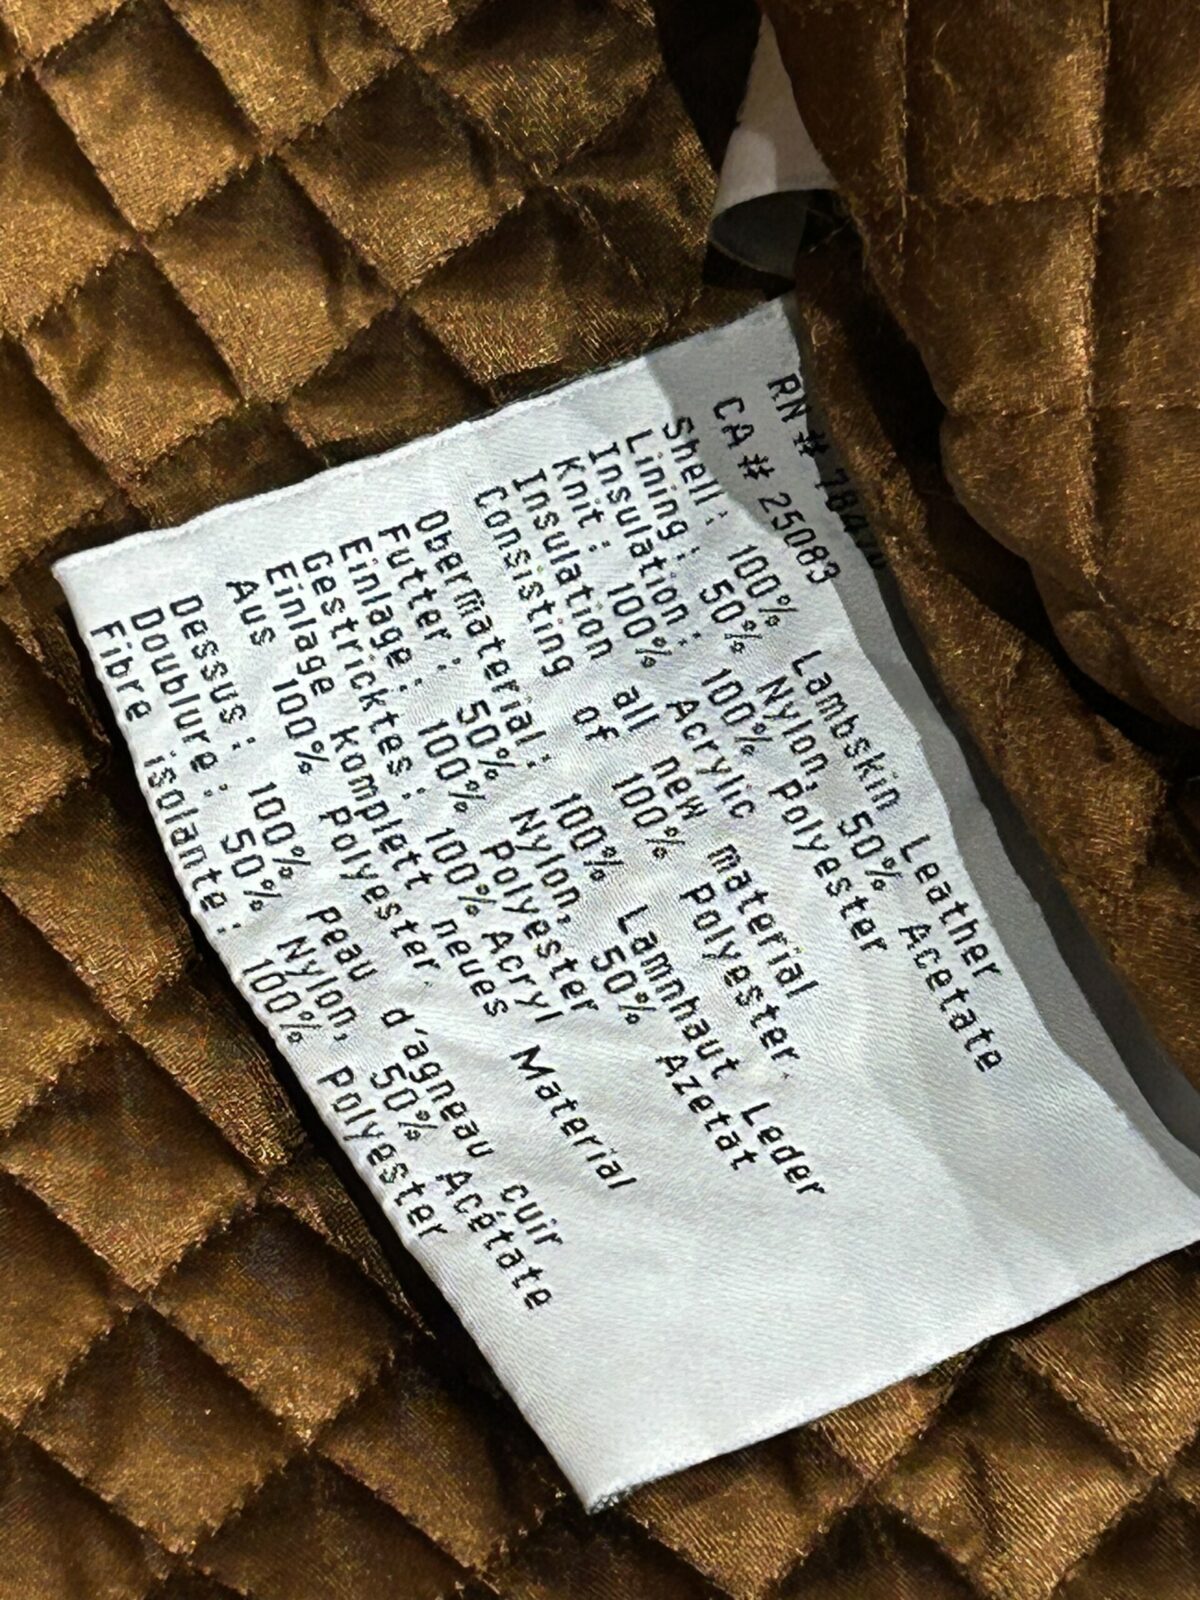 RN # 78470
CA # 25083
Shell: 100% Lambskin Leather
Lining: 50% Nylon, 50% Acetate
Insulation: 100% Polyester
Knit: 100% Acrylic
Insulation all new material
Consisting of 100% Polyester.
Obermaterial: 100% Lammhaut Leder
Futter: 50% Nylon, 50% Azetat
Einlage: 100% Polyester
Gestricktes: 100% Acryl
Einlage komplett neues Material
Aus 100% Polyester.
Dessus: 100% Peau d'agneau cuir
Doublure: 50% Nylon, 50% Acétate
Fibre isolante: 100% Polyester